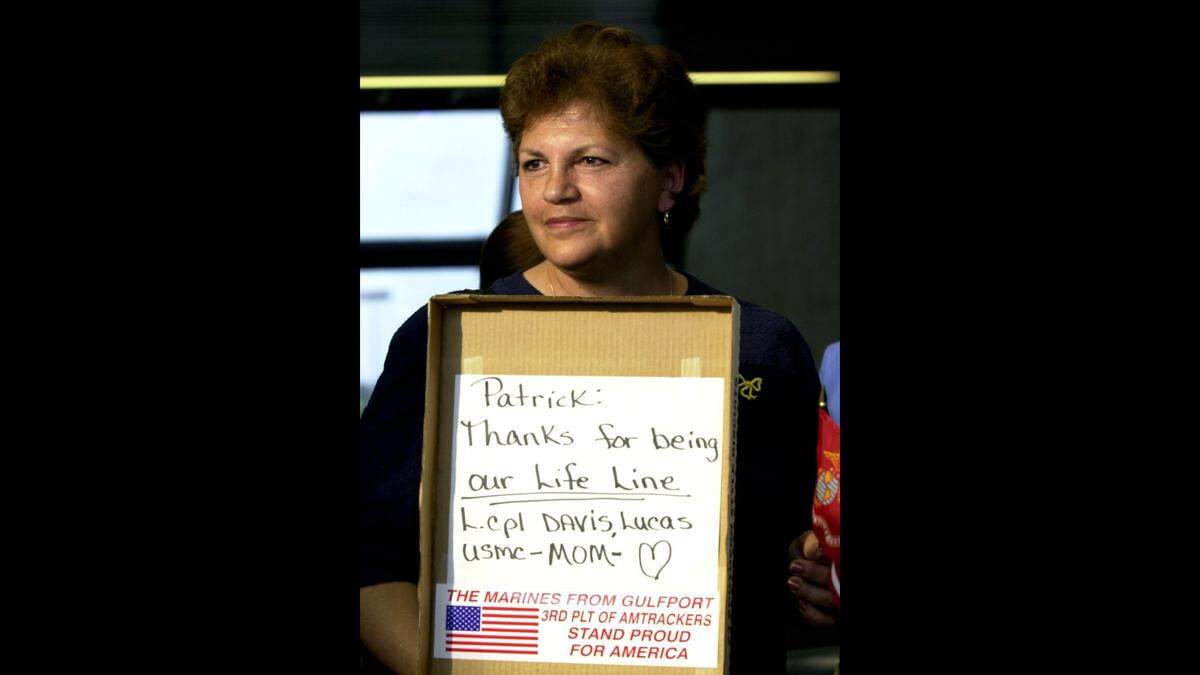 Patrick:
Thanks for being
our Life Line
L.cpl DAVIS, Lucas
USMC-MOM- ♡
THE MARINES FROM GULFPORT
3RD PLT OF AMTRACKERS
STAND PROUD
FOR AMERICA